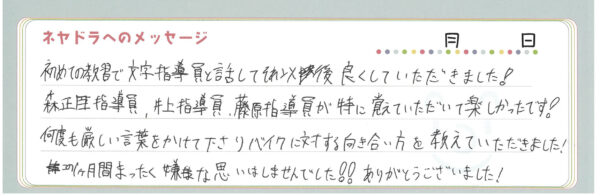 ネヤドラへのメッセージ
月 日
初めての教習で 指導員と話してそれ以後 良くしていただきました!
森正 指導員,井上指導員,藤原指導員が特に覚えていただいて楽しかったです!
何度も厳しい言葉をかけて下さりバイクに対する向き合い方を教えていただきました!
ヶ月間まったく嫌な思いはしませんでした!! ありがとうございました!